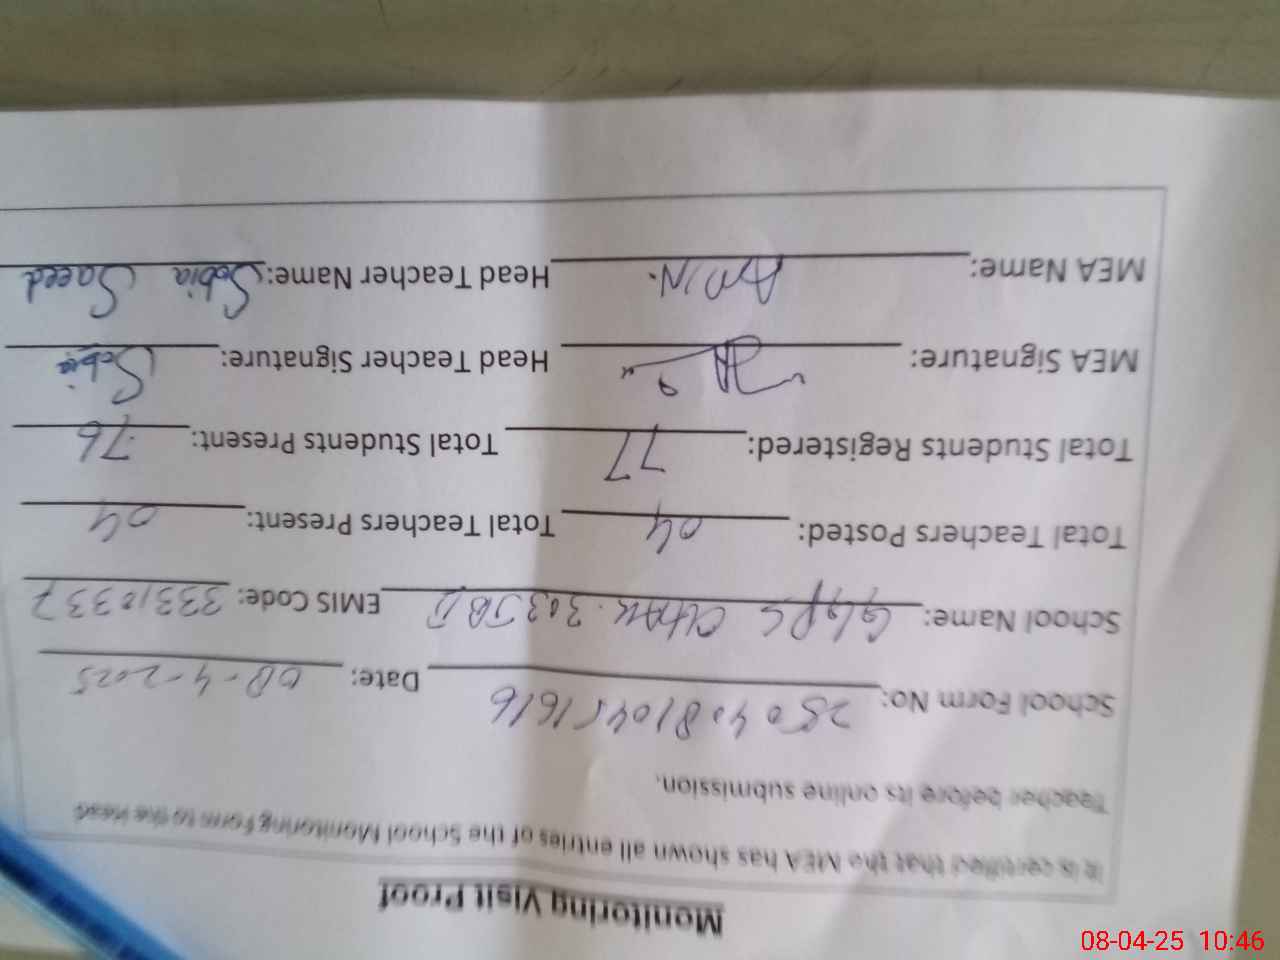 Monitoring Visit Proof
It is certified that the MEA has shown all entries of the School Monitoring Form to the Head
Teacher before its online submission.
School Form No: 25040810451616 Date: 08-4-2025
School Name: GGPS CHAK. 303JB I EMIS Code: 33310337
Total Teachers Posted: 04 Total Teachers Present: 04
Total Students Registered: 77 Total Students Present: 76
MEA Signature: Head Teacher Signature: Sobia
MEA Name: AMIN. Head Teacher Name: Sobia Saeed
08-04-25 10:46